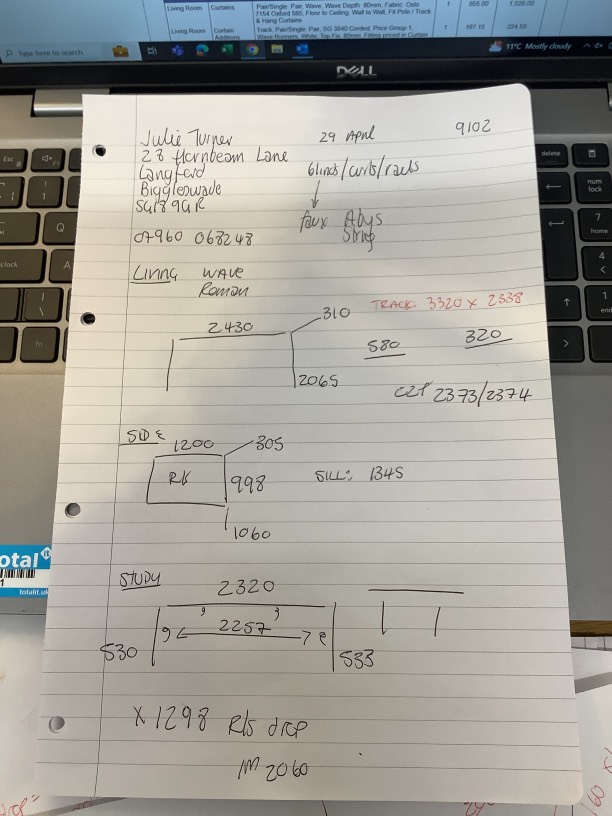 Living Room Curtains Pair/Single: Pair, Wave, Wave Depth: 80mm, Fabric: Oslo 7154 Oxford 565, Floor to Ceiling, Wall to Wall, Fit Pole / Track & Hang Curtains 1 855.00 1,026.00
Living Room Curtain Additions Track, Pair/Single: Pair, SG 3840 Corded, Price Group 1, 1 187.15 224.58
Type here to search
11°C Mostly cloudy
DELL
Julie Turner 29 April 9102
28 Hornbeam Lane
Langford blinds/curts/rads
Biggleswade
SG18 9GR faux Abys
String
07960 068248
Living WAVE
Roman
TRACK 3320 x 2338
2430 310
580 320
2065
C2F 2373/2374
SIDE
1200 305
R/S 998 SILL: 1345
1060
STUDY
2320
2257
530 533
x 1298 R/S drop
IM 2060
otal
totalit.uk
Esc
Q
A
fn
delete
num lock
7
home
4
1
end